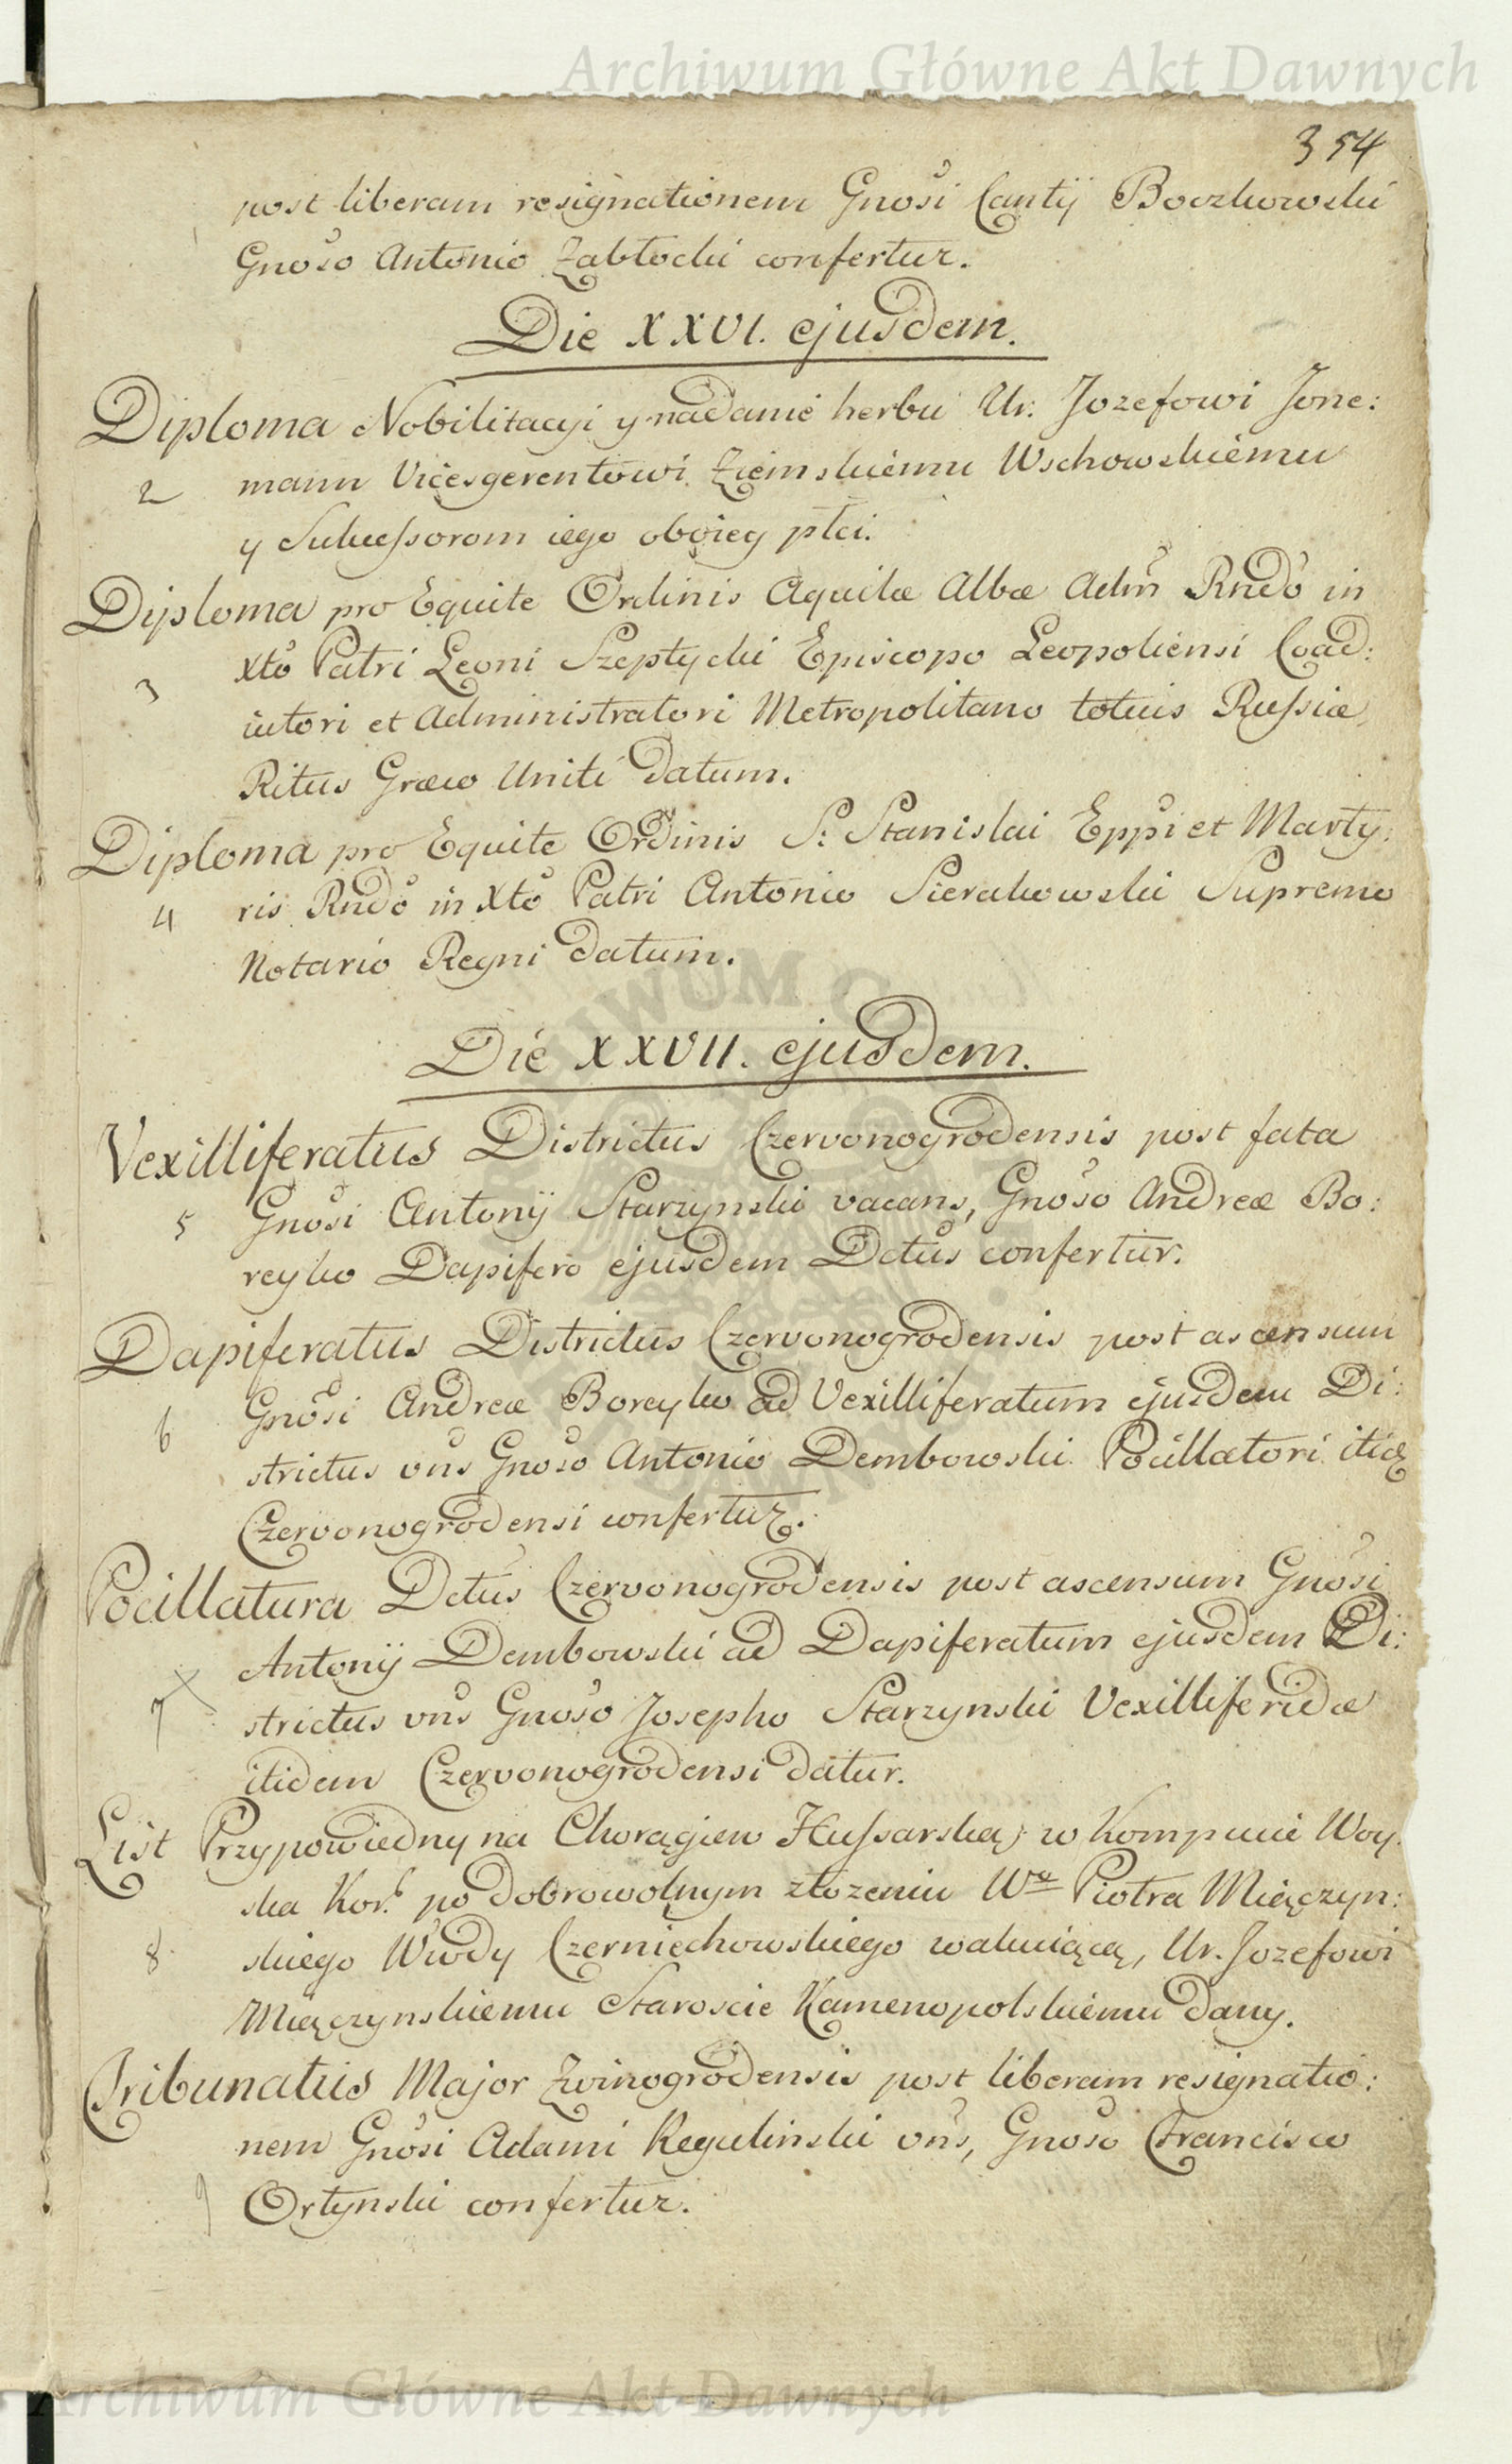 Archiwum Główne Akt Dawnych
354
post liberam resignationem Gnosi Cantÿ Boczkowski
Gnoso Antonio Zabłocki confertur.
Die XXVI. ejusdem.
Diploma Nobilitacyi y nadanie herbu Ur: Jozefowi Jone:
2 mann Vicesgerentowi Ziemskiemu Wschowskiemu
y Sukcessorom iego oboiey płci.
Diploma pro Equite Ordinis Aquilæ Albæ Adm Rndo in
Xto Patri Leoni Szeptycki Episcopo Leopoliensi Coad:
3 iutori et Administratori Metropolitano totius Russiæ
Ritus Græco Uniti datum.
Diploma pro Equite Ordinis S: Stanislai Eppi et Marty:
4 ris Rndo in Xto Patri Antonio Sierakowski Supremo
Notario Regni datum.
Die XXVII. ejusdem.
Vexilliferatus Districtus Czervonogrodensis post fata
5 Gnosi Antonÿ Starzynski vacans, Gnoso Andreæ Bo:
reyko Dapifero ejusdem Dctus confertur.
Dapiferatus Districtus Czervonogrodensis post ascensum
6 Gnosi Andreæ Boreyko ad Vexilliferatum ejusdem Di:
strictus vns Gnoso Antonio Dembowski Pocillatori itid
Czervonogrodensi confertur.
Pocillatura Dctus Czervonogrodensis post ascensum Gnosi
Antonÿ Dembowski ad Dapiferatum ejusdem Di:
7 strictus vns Gnoso Josepho Starzynski Vexilliferidæ
itidem Czervonogrodensi datur.
List Przypowiedny na Chorągiew Hussarską w Kompucie Woy
ska Kor. po dobrowolnym złożeniu Wo Piotra Miączyn:
8 skiego Wwdy Czerniechowskiego wakuiącą, Ur. Jozefowi
Miączynskiemu Staroscie Kamenopolskiemu dany.
Tribunatus Major Zwinogrodensis post liberam resignatio:
nem Gnosi Adami Regulinski vns, Gnoso Francisco
9 Ortynski confertur.
Archiwum Główne Akt Dawnych